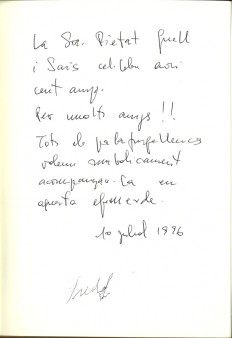 La Sra. Pietat Güell
i Saris celebra avui
cent anys.
Per molts anys!!
Tots els palafrugellencs
volem simbòlicament
acompanyar-la en
aquesta efemèrde.
10 juliol 1996